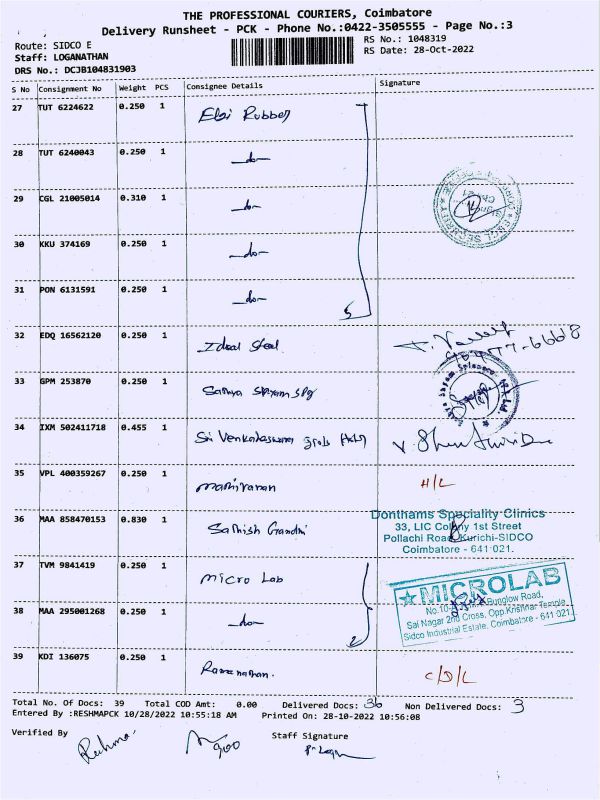 THE PROFESSIONAL COURIERS, Coimbatore
Delivery Runsheet - PCK - Phone No.:0422-3505555 - Page No.:3
Route: SIDCO E
RS No.: 1048319
Staff: LOGANATHAN
RS Date: 28-Oct-2022
DRS No.: DCJB104831903
S No Consignment No Weight PCS Consignee Details Signature
27 TUT 6224622 0.250 1 Elgi Rubber
28 TUT 6240043 0.250 1 -do-
29 CGL 21005014 0.310 1 -do-
30 KKU 374169 0.250 1 -do-
31 PON 6131591 0.250 1 -do-
5
32 EDQ 16562120 0.250 1 Ideal Steel
33 GPM 253870 0.250 1
34 IXM 502411718 0.455 1 Sri Venkateswara
35 VPL 400359267 0.250 1 manivanan H/L
36 MAA 858470153 0.830 1 Sathish Gandhi
Donthams Speciality Clinics
33, LIC Colony 1st Street
Pollachi Road, Kurichi-SIDCO
Coimbatore - 641 021.
37 TVM 9841419 0.250 1 Micro Lab
38 MAA 295001268 0.250 1 -do-
2
MICROLAB
Bunglow Road,
Sai Nagar 2nd Cross, Opp.Krishnar Temple,
Sidco Industrial Estate, Coimbatore - 641 021.
39 KDI 136075 0.250 1 Ramanathan. C/D/L
Total No. Of Docs: 39 Total COD Amt: 0.00 Delivered Docs: 36 Non Delivered Docs: 3
Entered By :RESHMAPCK 10/28/2022 10:55:18 AM Printed On: 28-10-2022 10:56:08
Verified By Staff Signature
Reshma
900